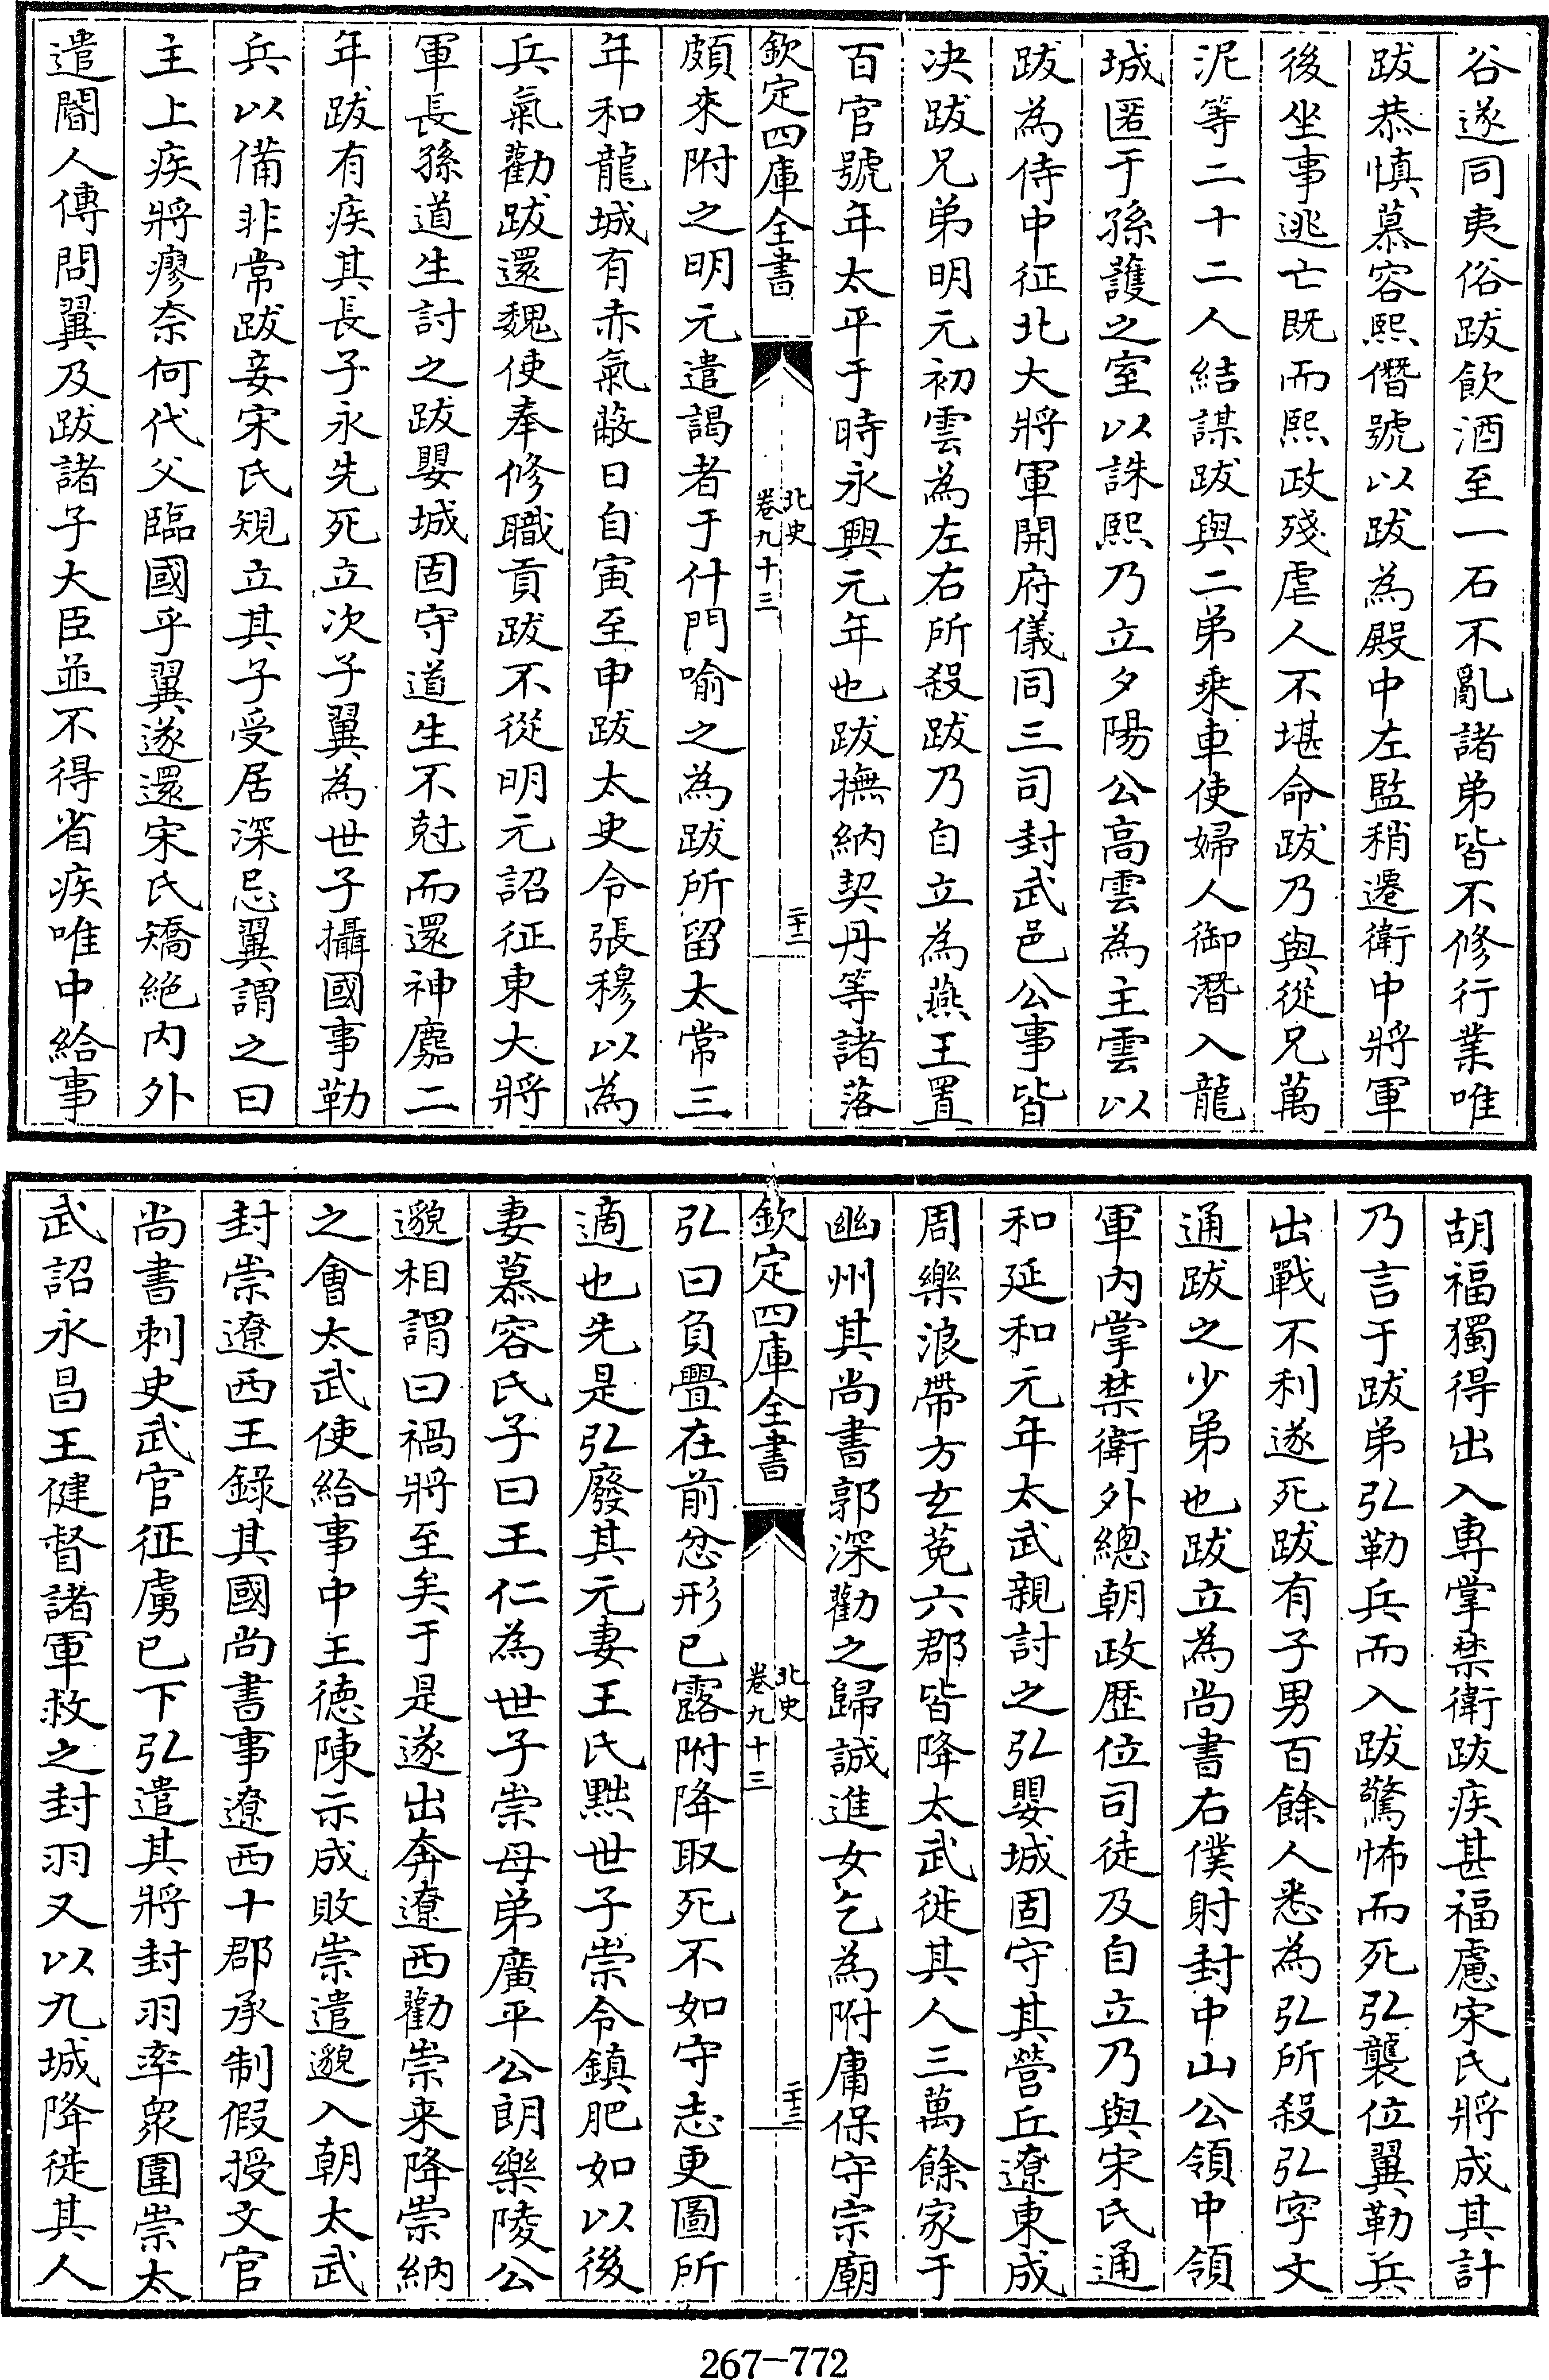 谷遂同夷俗跋飲酒至一石不亂諸弟皆不修行業唯
跋恭慎慕容熙僭號以跋為殿中左監稍遷衛中將軍
後坐事逃亡既而熙政殘虐人不堪命跋乃與從兄萬
泥等二十二人結謀跋與二弟乗車使婦人御潛入龍
城匿于孫護之室以誅熙乃立夕陽公高雲為主雲以
跋為侍中征北大將軍開府儀同三司封武邑公事皆
决跋兄弟明元初雲為左右所殺跋乃自立為燕王置
百官號年太平于時永興元年也跋撫納契丹等諸落
欽定四庫全書
北史
卷九十三
二十二
頗來附之明元遣謁者于什門喻之為跋所留太常三
年和龍城有赤氣蔽日自寅至申跋太史令張穆以為
兵氣勸跋還魏使奉修職貢跋不從明元詔征東大將
軍長孫道生討之跋嬰城固守道生不尅而還神䴥二
年跋有疾其長子永先死立次子翼為世子攝國事勒
兵以備非常跋妾宋氏規立其子受居深忌翼謂之曰
主上疾將瘳奈何代父臨國乎翼遂還宋氏矯絶内外
遣閽人傳問翼及跋諸子大臣並不得省疾唯中給事
胡福獨得出入專掌禁衛跋疾甚福慮宋氏將成其計
乃言于跋弟弘勒兵而入跋驚怖而死弘襲位翼勒兵
出戰不利遂死跋有子男百餘人悉為弘所殺弘字文
通跋之少弟也跋立為尚書右僕射封中山公領中領
軍内掌禁衛外總朝政歴位司徒及自立乃與宋氏通
和延和元年太武親討之弘嬰城固守其營丘遼東成
周樂浪帶方玄菟六郡皆降太武徙其人三萬餘家于
幽州其尚書郭深勸之歸誠進女乞為附庸保守宗廟
欽定四庫全書
北史
卷九十三
二十三
弘曰負釁在前忿形已露附降取死不如守志更圖所
適也先是弘廢其元妻王氏黜世子崇令鎮肥如以後
妻慕容氏子曰王仁為世子崇母弟廣平公朗樂陵公
邈相謂曰禍將至矣于是遂出奔遼西勸崇来降崇納
之會太武使給事中王徳陳示成敗崇遣邈入朝太武
封崇遼西王錄其國尚書事遼西十郡承制假授文官
尚書刺史武官征虜已下弘遣其將封羽率衆圍崇太
武詔永昌王健督諸軍救之封羽又以九城降徙其人
267—772